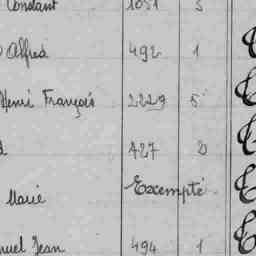 Constant 1051 5
Alfred 492 1
Henri François 2229 5
427 2
Exempté
Marie
nuel Jean 494 1